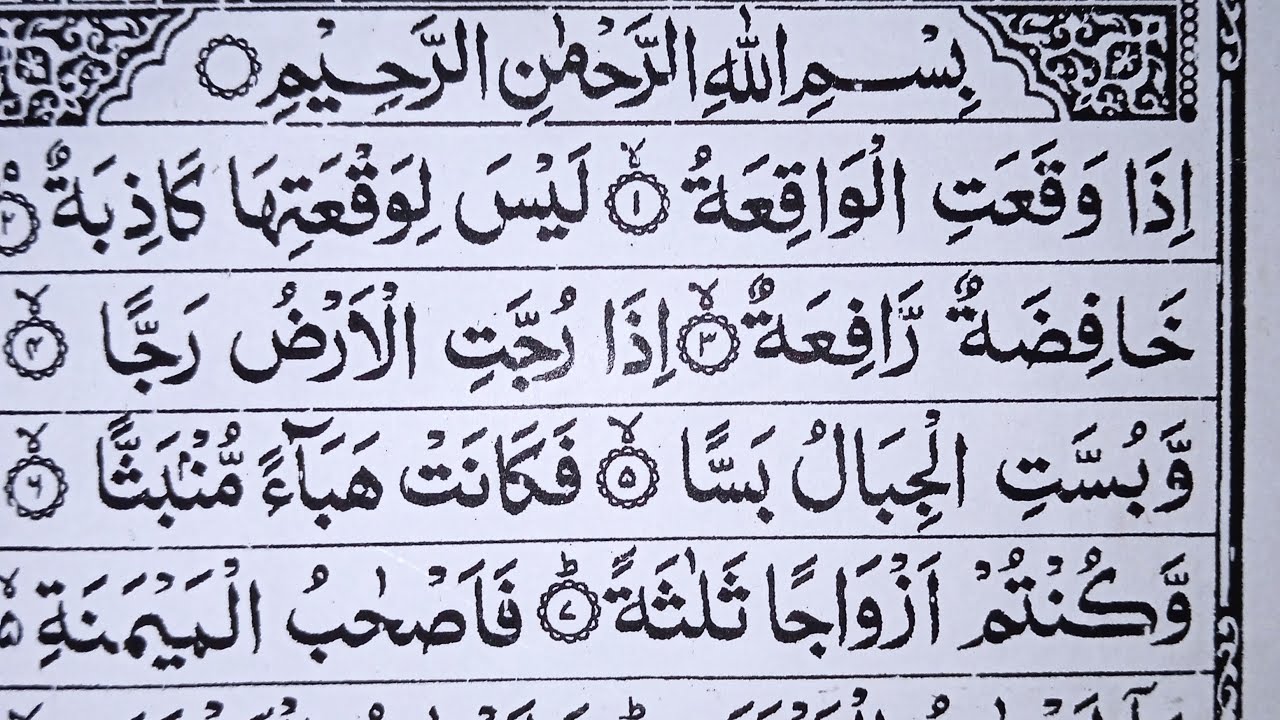 بِسْمِ اللّٰهِ الرَّحْمٰنِ الرَّحِيْمِ ۝
اِذَا وَقَعَتِ الْوَاقِعَةُ ۙ﴿۱﴾ لَيْسَ لِوَقْعَتِهَا كَاذِبَةٌ ۘ﴿۲﴾
خَافِضَةٌ رَّافِعَةٌ ۙ﴿۳﴾ اِذَا رُجَّتِ الْاَرْضُ رَجًّا ۙ﴿۴﴾
وَّ بُسَّتِ الْجِبَالُ بَسًّا ۙ﴿۵﴾ فَكَانَتْ هَبَآءً مُّنْۢبَثًّا ۙ﴿۶﴾
وَّ كُنْتُمْ اَزْوَاجًا ثَلٰثَةً ؕ﴿۷﴾ فَاَصْحٰبُ الْمَيْمَنَةِ ۙ۬